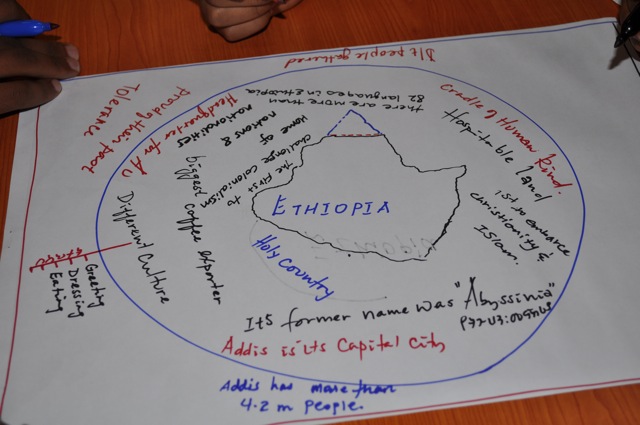 D/t people gathered
Tolerance
Proud of their past
Headquarter for AU
Home of
nations &
nationalities
there are more than
82 languages in Ethiopia
Cradle of Human kind.
Hospitable land
1st to embrace
christianity &
ISlam.
the first to
challenge colonialism
biggest coffee exporter
Different culture
Greeting
Dressing
Eating
ETHIOPIA
Holy Country
Its former name was "Abyssinia"
Addis is its Capital City
Addis has more than
4.2 m people.